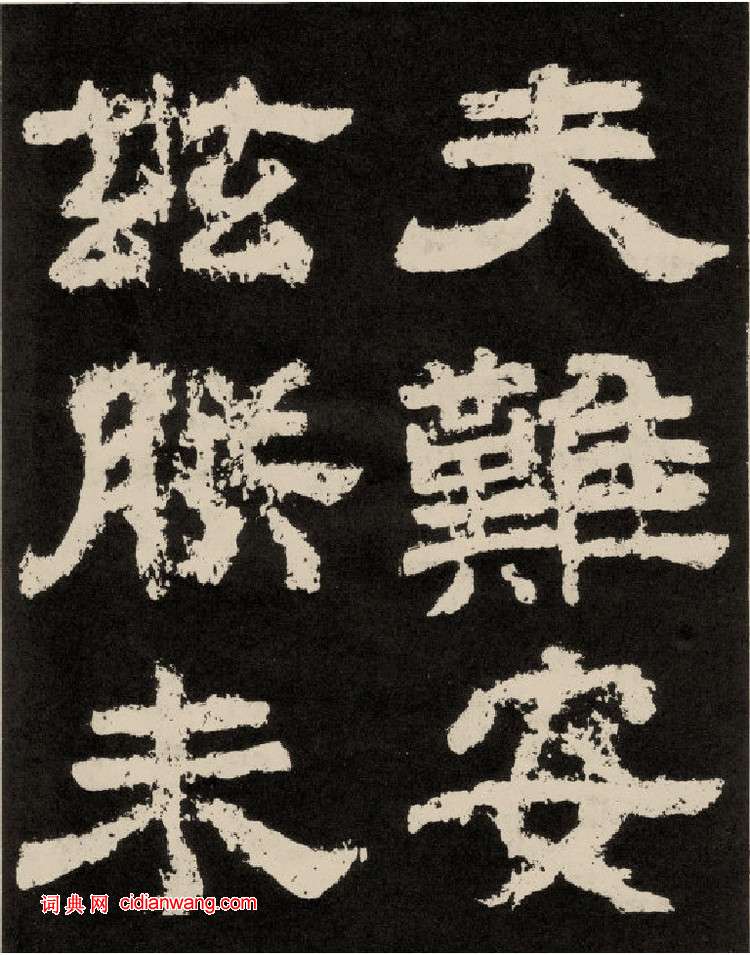 夫難安
茲朕未
词典网 cidianwang.com